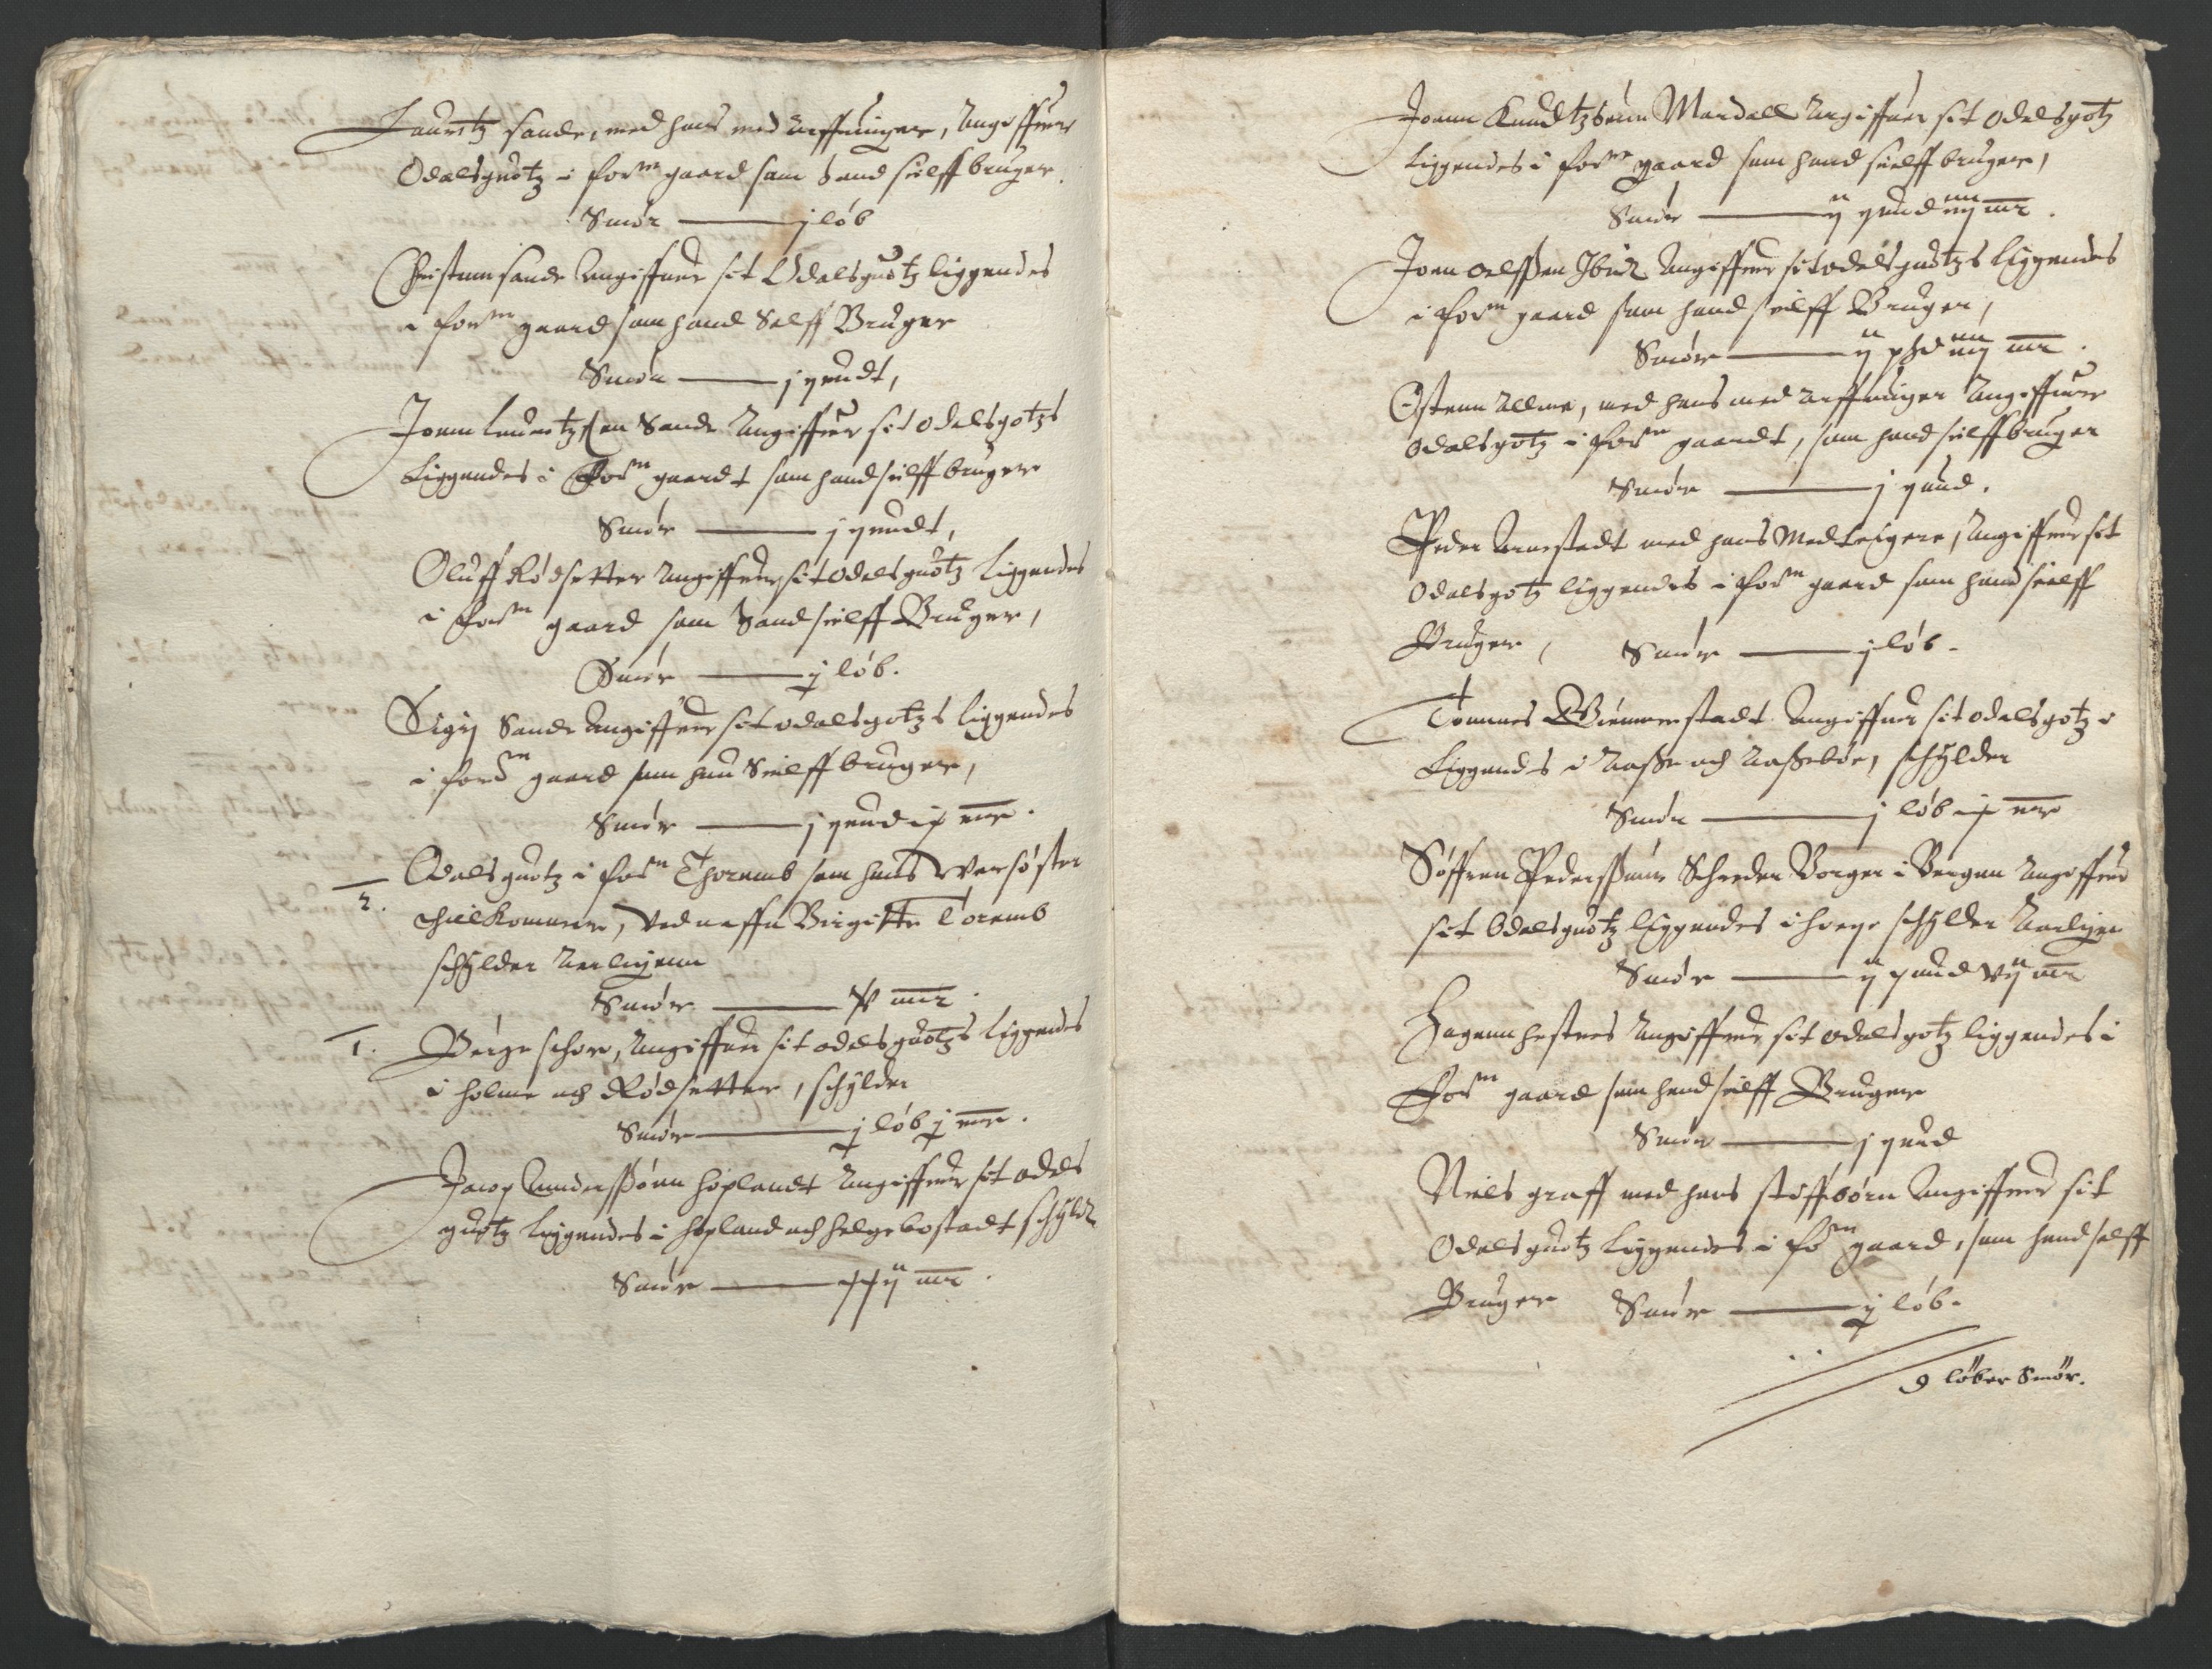 Lauritz sande, med hans med arffuinger, Angiffuer
Odalsguotz i forne gaard som hand sielff bruger.
Smör —— j löb
Christenn sande Angiffuer sit Odalsguotz liggendes
i forne gaard som hand Selff Bruger
Smör —— j pundt,
Joenn Lauritzsen Sande Angiffuer sit odelsgotzs
Liggendes i Forn gaardt som hand sielff bruger
Smör —— j pundt,
Oluff Rödsetter Angiffuer sit odelsguotz liggendes
i Forn gaard som hand sielff Bruger,
Smör —— j löb.
Sande Angiffuer sit odalsgotzs liggendes
i forn gaard som hun Sielff bruger,
Smör —— j pund ix mr.
2. Odalsguotz i forn Thoremb som hans Versöster
tilkommer, ved naffn Birgitte Toremb
schylder Aarligenn
Smör —— mr.
1. Börge schor, Angiffuer sit odelsguotzs liggendes
i holme och Rödsetter, schylder
Smör —— j löb j mr.
Jacop Anderssönn hoplandt Angiffuer sit odels
guotz liggendes i hopland och helgebostadt schylder
Smör —— xxij mr.
Joenn Knudtzsönn Mardall Angiffuer sit odelsgotz
liggendes i forne gaard som hand sielff bruger,
Smör —— ij pund iiij mr.
Joen oelssen Ibid Angiffuer sit odelsguotzs liggendes
i forn gaard som hand sielff Bruger,
Smör —— ij pd iiij mr.
Östenn Alme, med hans med arffuinger Angiffuer
odalsgotz i forn gaardt, som hand sielff bruger
Smör —— j pund.
Peder Arnestadt med hans Medleigere, Angiffuer sit
Odalsgotz liggendes i forn gaard som hand sielff
Bruger, Smör —— j löb.
Tommes Angiffuer sit odelsgotz
Liggendes i Aasse och Aasseböe, schylder
Smör —— j löb ix mr
Söffren Pederssönn Schreder Borger i Bergen Angiffuer
sit Odelsguotz liggendes i schylder Aarligen
Smör —— ij pund vij mr
Hagenn hestnes Angiffuer sit odelsgotz liggendes i
Forn gaard som hand sielff Bruger
Smör —— j pund
Niels graff med hans stiffbörn Angiffuer sit
Odelsguotz liggendes i forn gaard, som hand selff
Bruger Smör —— j löb.
9 löber Smör.